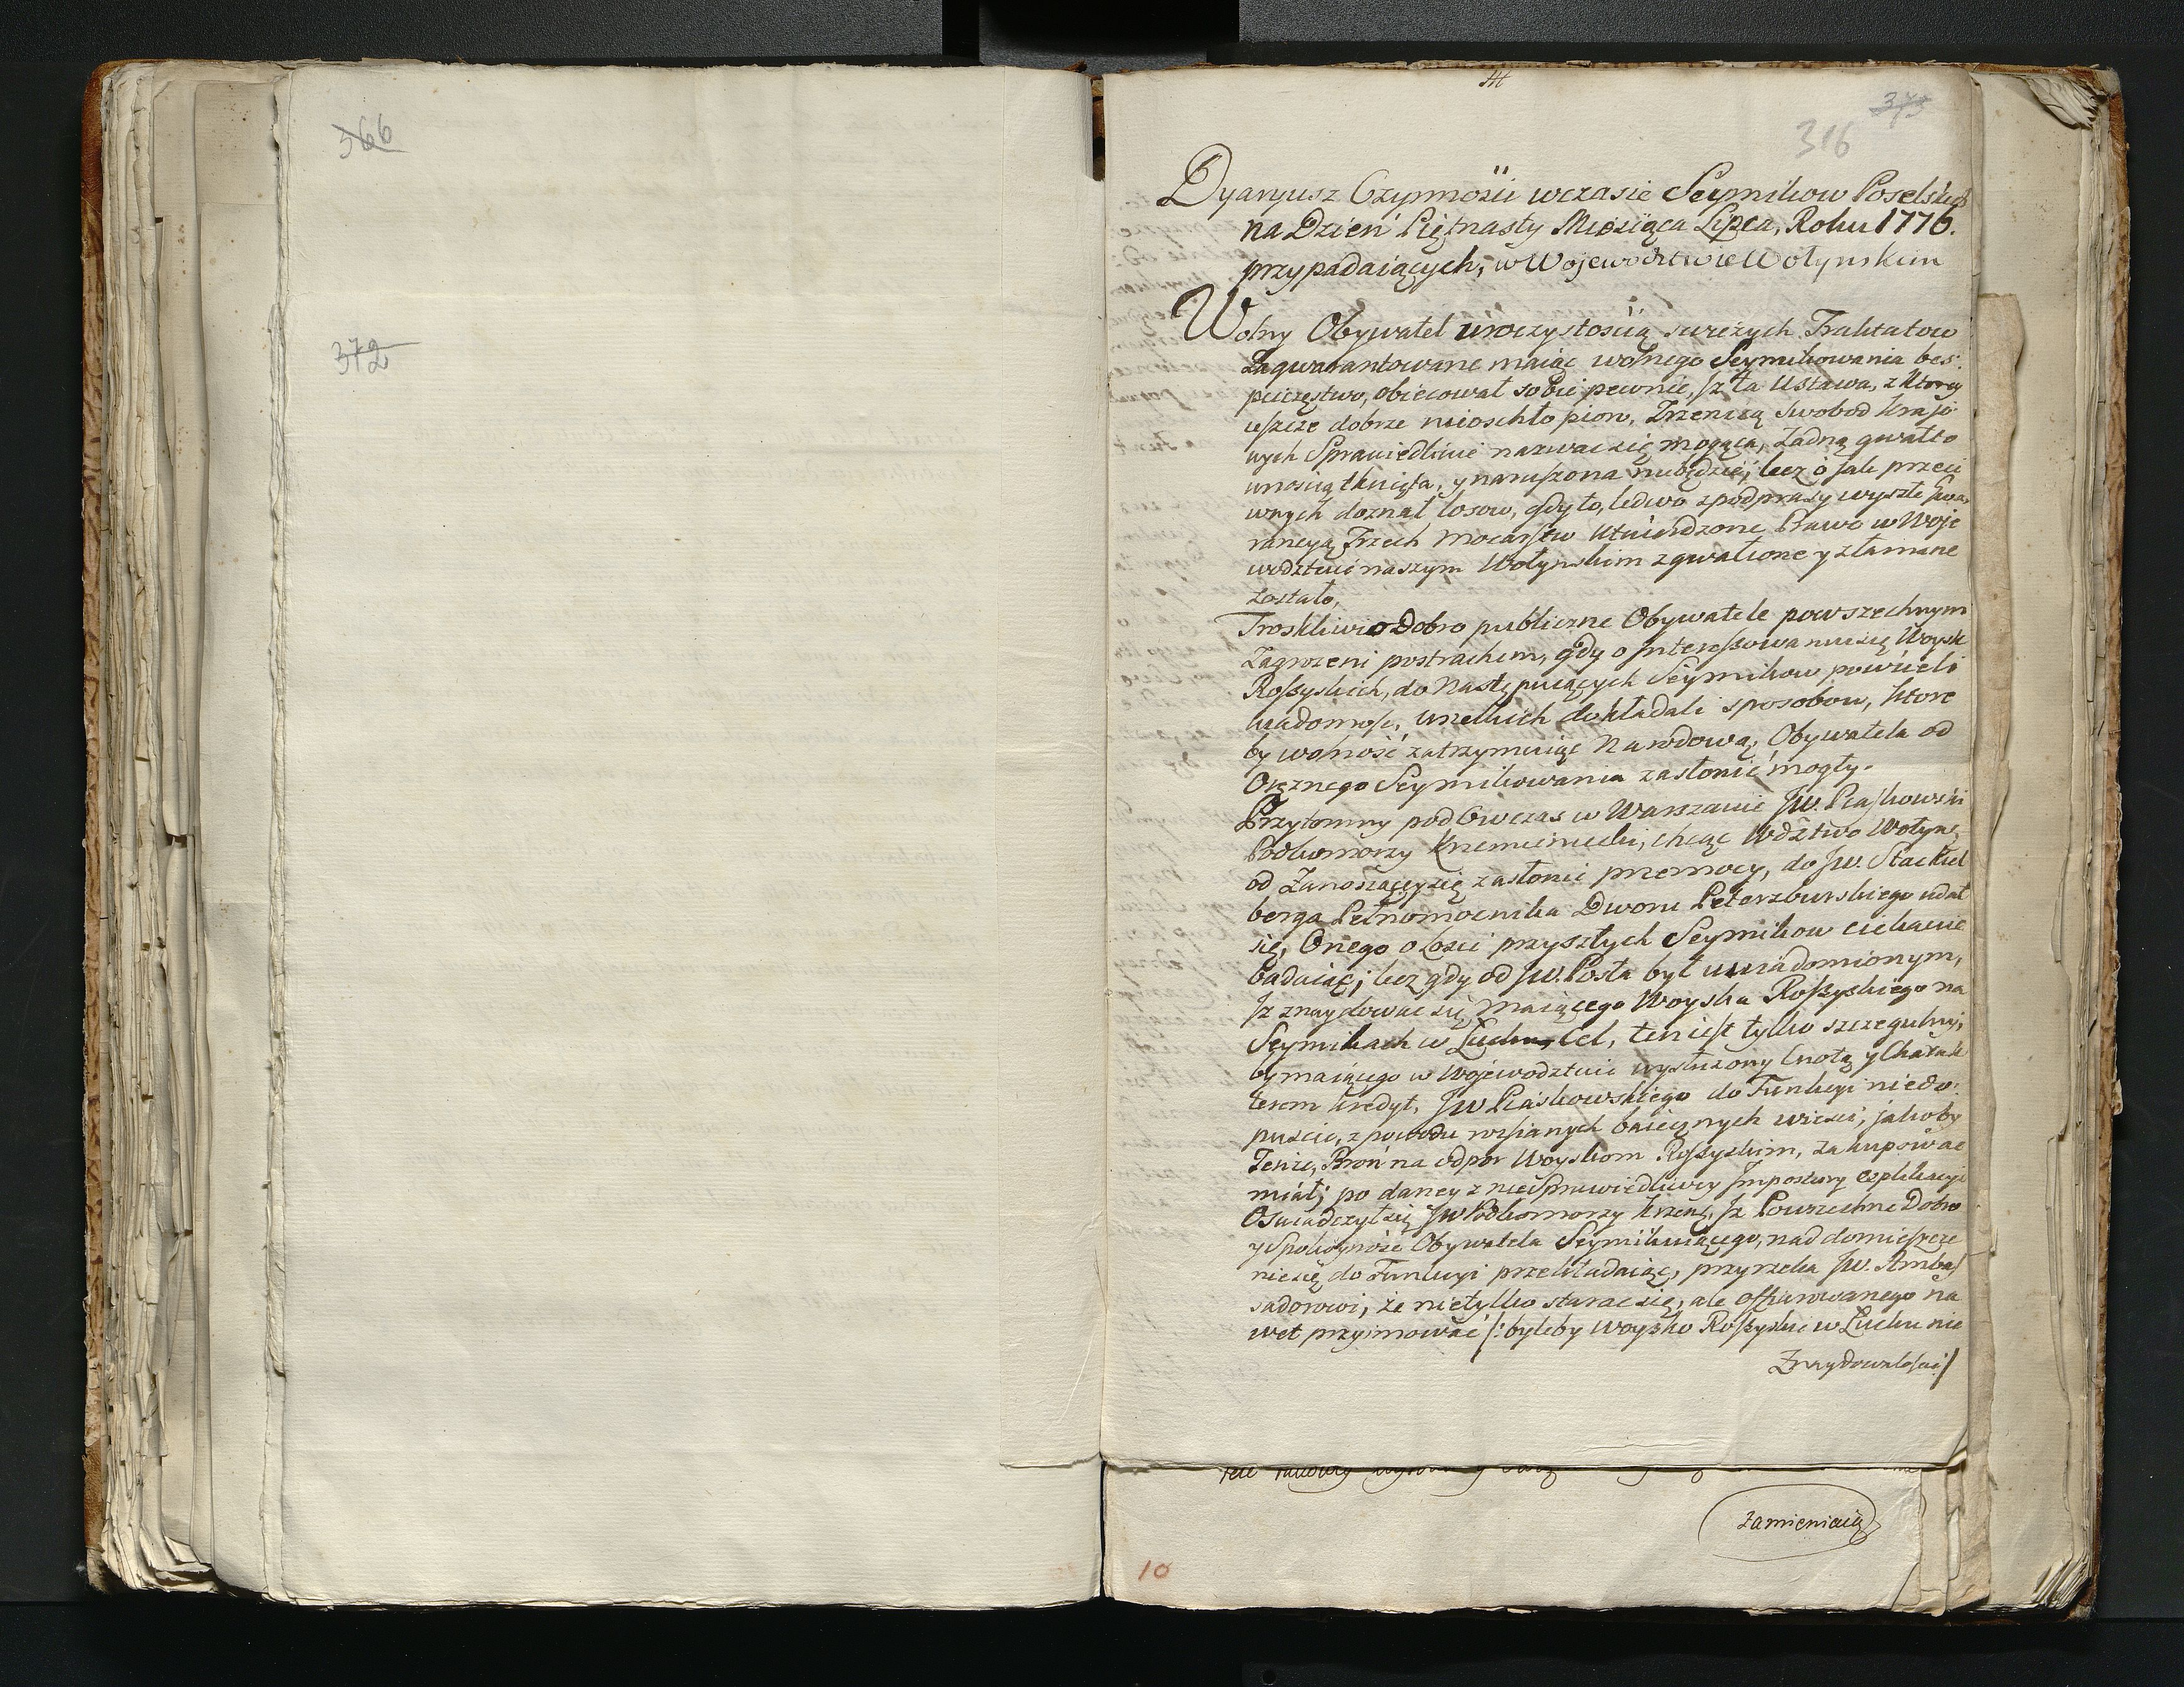 366
372
373
316
Dyaryusz Czynnosci wczasie Seymikow Poselskich
na Dzień Piętnasty Miesiąca Lipca, Roku 1776.
przypadaiących, w Wojewodztwie Wołynskim
Wolny Obywatel uroczystoscią swieżych Traktatow
Zagwarantowane maiąc wolnego Seymikowania bes:
pieczęstwo, obiecował sobie pewnie, Jż ta Ustawa, z ktorey
ieszcze dobrze nieoschło pioro, Zrzenicą Swobod krajo
wych Sprawiedliwie nazwac się mogąca, żadną gwałto
wnoscią tknięta, y naruszona niebędzie; lecz o jak przeci
wnych doznał losow, gdy to, ledwo z pod prasy wyszłe Gwa
rancyą Trzech Mocarstw Utwierdzone Prawo w Woje
wodztwie naszym Wołynskim zgwałcone y złamane
zostało,
Troskliwi o Dobro publiczne Obywatele powszechnym
Zagrozeni postrachem, gdy o Interessowaniu się Woysk
Rossyskich, do Następuiących Seymikow powzieli
wiadomosc, wszelkich dokładali sposobow, ktore
by wolność zatrzymuiąc Narodową, Obywatela od
Oręznego Seymikowania zasłonić mogły.
Przytomny pod Owczas w Warszawie JW. Piaskowski
Podkomorzy Krzemieniecki, chcąc Wdztwo Wołyn:
od Zanoszącey się zasłonic przemocy, do JW. Stackel
berga Pełnomocnika Dworu Peterzburskiego udał
się, Onego o Losie przyszłych Seymikow ciekawie
badaiąc; lecz gdy od JW. Posła był uwiadomionym,
Jż znaydowac się maiącego Woyska Rossyskiego na
Seymikach w Łucku, Cel, ten iest tylko szczegulny,
by maiącego w Wojewodztwie wysłużony Cnotą y Charak
terem kredyt, JW Piaskowskiego do Funkcyi niedo:
puscic, z powodu rozsianych baiecznych wiesci, jakoby
Tenże, Broń na odpor Woyskom Rossyskim, zakupowac
miał; po daney z niesprawiedliwey Jmpostury explikacyi
Oswiadczył się JW Podkomorzy Krzem: Jż Powszechne Dobro
y Spokoyność Obywatela Seymikuiącego, nad domieszcze
nie się do Funkcyi przekładaiąc, przyrzeka JW. Ambas
sadorowi, że nietylko starac się, ale offiarowanego na
wet przyimować /: byleby woysko Rossyskie w Łucku nie
Znaydowało się :/
zamieniaią
10